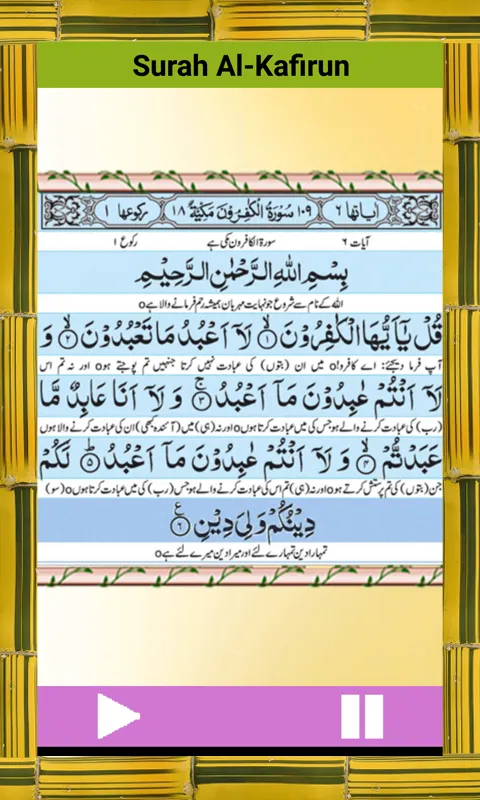 Surah Al-Kafirun
اٰیاتها ۶ ۱۰۹ سُوْرَةُ الْكٰفِرُوْنَ مَكِّيَّةٌ ۱۸ رکوعها ۱
آیات ۶ سورۃ الکافرون مکی ہے رکوع ۱
بِسْمِ اللهِ الرَّحْمٰنِ الرَّحِيْمِ
اللہ کے نام سے شروع جو نہایت مہربان ہمیشہ رحم فرمانے والا ہے o
قُلْ يٰۤاَيُّهَا الْكٰفِرُوْنَ ۙ﴿۱﴾ لَاۤ اَعْبُدُ مَا تَعْبُدُوْنَ ۙ﴿۲﴾ وَ
آپ فرما دیجئے: اے کافرو! o میں ان (بتوں) کی عبادت نہیں کرتا جنہیں تم پوجتے ہو o اور نہ تم اس
لَاۤ اَنْتُمْ عٰبِدُوْنَ مَاۤ اَعْبُدُ ۚ﴿۳﴾ وَ لَاۤ اَنَا عَابِدٌ مَّا
(رب) کی عبادت کرنے والے ہو جس کی میں عبادت کرتا ہوں o اور نہ (ہی) میں (آئندہ کبھی) ان کی عبادت کرنے والا ہوں
عَبَدْتُّمْ ۙ﴿۴﴾ وَ لَاۤ اَنْتُمْ عٰبِدُوْنَ مَاۤ اَعْبُدُ ؕ﴿۵﴾ لَكُمْ
جن (بتوں) کی تم پرستش کرتے ہو o اور نہ (ہی) تم اس کی عبادت کرنے والے ہو جس (رب) کی میں عبادت کرتا ہوں o (سو)
دِيْنُكُمْ وَلِيَ دِيْنِ ﴿۶﴾ ع
تمہارا دین تمہارے لئے اور میرا دین میرے لئے ہے o